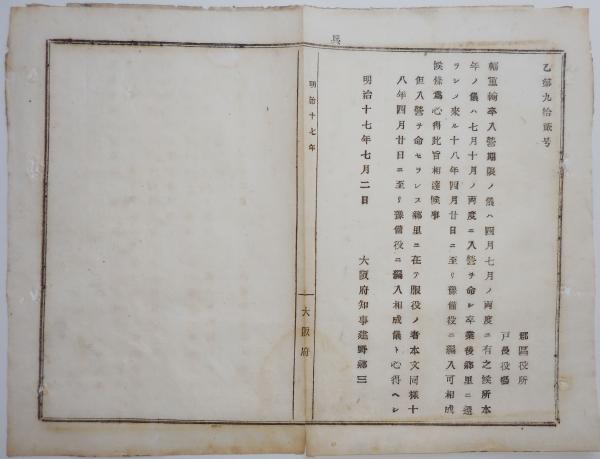 乙第九拾貳号
郡區役所
戸長役塲
輜重輸卒入營期限ノ儀ハ四月七月ノ兩度ニ有之候所本
年ノ儀ハ七月十月ノ兩度ニ入營ヲ命シ卒業後鄕里ニ還
ラシメ來ル十八年四月廿日ニ至リ豫備役ニ編入可相成
候條爲心得此旨相達候事
但入營ヲ命セラレス鄕里ニ在テ服役ノ者本文同樣十
八年四月廿日ニ至リ豫備役ニ編入相成儀ト心得ヘシ
明治十七年七月二日
大阪府知事建野鄕三
明治十七年
大阪府